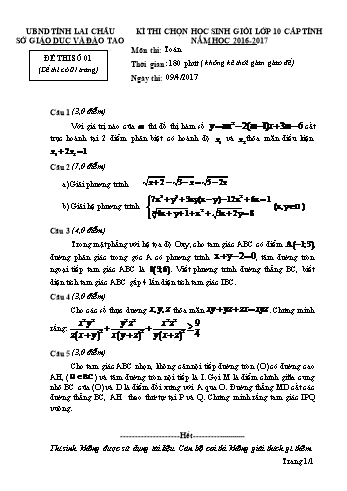 UBND TỈNH LAI CHÂU
SỞ GIÁO DỤC VÀ ĐÀO TẠO
KÌ THI CHỌN HỌC SINH GIỎI LỚP 10 CẤP TỈNH
NĂM HỌC 2016-2017
ĐỀ THI SỐ 01
(Đề thi có 01 trang)
Môn thi: Toán
Thời gian: 180 phút ( không kể thời gian giao đề)
Ngày thi: 09/4/2017
Câu 1 (3,0 điểm)
Với giá trị nào của m thì đồ thị hàm số y=mx²-2(m-1)x+3m-6 cắt
trục hoành tại 2 điểm phân biệt có hoành độ x₁ và x₂ thỏa mãn điều kiện
x₁+2x₂=1
Câu 2 (7,0 điểm)
a) Giải phương trình √x+2-√3-x=√5-2x
b) Giải hệ phương trình
(x,y∈ℝ)
Câu 3 (4,0 điểm)
Trong mặt phẳng với hệ tọa độ Oxy, cho tam giác ABC có điểm
đường phân giác trong góc A có phương trình x+y-2=0, tâm đường tròn
ngoại tiếp tam giác ABC là I(3;6). Viết phương trình đường thẳng BC, biết
diện tích tam giác ABC gấp 4 lần diện tích tam giác IBC.
Câu 4 (3,0 điểm)
Cho các số thực dương x,y,z thỏa mãn xy+yz+zx=xyz. Chứng minh
rằng: x²y²/z(x+y)+y²z²/x(y+z)+x²z²/y(x+z)≥9/4
Câu 5 (3,0 điểm)
Cho tam giác ABC nhọn, không cân nội tiếp đường tròn (O) có đường cao
AH, (H∈BC) và tâm đường tròn nội tiếp là I. Gọi M là điểm chính giữa cung
nhỏ BC của (O) và D là điểm đối xứng với A qua O. Đường thẳng MD cắt các
đường thẳng BC, AH theo thứ tự tại P và Q. Chứng minh rằng tam giác IPQ
vuông.
Hết
Thí sinh không được sử dụng tài liệu. Cán bộ coi thi không giải thích gì thêm.
Trang 1/1